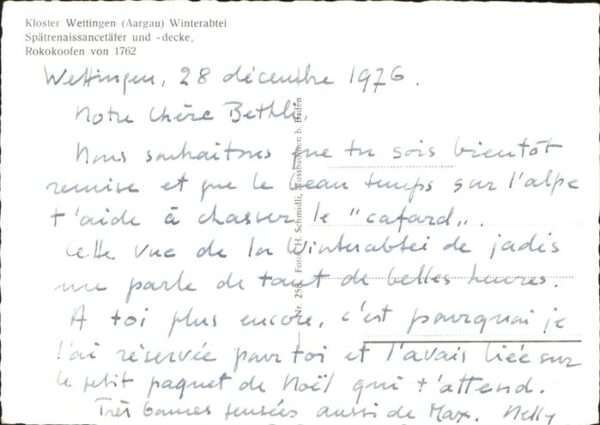 Kloster Wettingen (Aargau) Winterabtei
Spätrenaissancetäfer und -decke,
Rokokoofen von 1762
Wettingen, 28 décembre 1976.
Notre chère Bethli,
Nous souhaitons que tu sois bientôt
remise et que le beau temps sur l'alpe
t'aide à chasser le "cafard".
Cette vue de la Winterabtei de jadis
me parle de tant de belles heures.
A toi plus encore, c'est pourquoi je
l'ai réservée pour toi et l'avais liée sur
le petit paquet de Noël qui t'attend.
Très bonnes pensées aussi de Max. Nelly
Nr. 258 Foto H. Schmidli, b. Baden